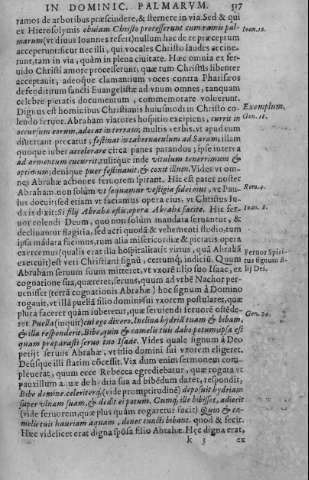 IN DOMINIC. PALMARVM. 517
ramos de arboribus præscindere, & sternere in via. Sed & qui
ex Hierosolymis obuiam Christo processerunt cum ramis pal-
marum (vt diuus Ioannes refert) nullum hac de re præceptum Ioan. 12.
acceperunt: sicut nec illi, qui vocales Christo laudes accine-
runt, tam in via, quàm in plena ciuitate. Hæc omnia ex fer-
uido Christi amore processerunt, quæ tum Christus libenter
acceptauit, adeoque clamantium voces contra Phariseos
defendit: tum sancti Euangelistæ ad vnum omnes, tanquam
celebre pietatis documentum, commemorare voluerunt.
Dignus est hominibus Christianis huiusmodi in Christo co- Exemplum.
lendo feruor. Abraham viatores hospitio excipiens, currit in Gen. 18.
occursum eorum, adorat in terram; multis verbis, vt apud eum
diuertant precatur; festinat in tabernaculum ad Saram; illam
quoque iubet accelerare circa panes parandos; ipse interea
ad armentum cucurrit, tulitque inde vitulum tenerrimum &
optimum; denique puer festinauit, & coxit illum. Vides vt om-
nes Abrahæ actiones feruorem spirant. Hic est pater noster
Abraham, non solùm vt sequamur vestigia fidei eius, vt Pau- Rom. 4.
lus docuit: sed etiam vt faciamus opera eius, vt Christus Iu-
dæis dixit: Si filij Abrahæ estis, opera Abrahæ facite. Hic fer- Ioan. 8.
uor colendi Deum, quo non solùm mandata seruantur, &
declinantur flagitia, sed acri quodã & vehementi studio, tum
ipsa mádata facimus, tum alia misericordiæ & pietatis opera
exercemus (qualis erat illa hospitalitatis virtus, quã Abrahã
exercuit) est veri Christiani signũ, certumq; indiciũ. Quum Feruor Spiri-
Abraham seruum suum mitteret, vt vxorẽ filio suo Isaac, ex tus signum fi-
cognatione sua, quæreret, seruus, quum ad vrbẽ Nachor per- lij Dei.
uenisset (terrã cognationis Abrahæ) hoc signum à Domino
rogauit, vt illa puellã filio domini sui vxorem postularet, quæ
plura faceret quàm iuberetur, quæ feruendi feruorẽ ostẽde-
ret. Puella (inquit) cui ego dixero, Inclina hydriã tuam & bibam, Gen. 24.
& illa responderit, Bibe, quin & camelis tuis dabo potum; ipsa est
quam præparasti seruo tuo Isaac. Vides quale signum à Deo
petijt seruus Abrahæ, vt filio domini sui vxorem eligeret.
Deusque illi statim concessit. Vix dum enim sermonem com-
pleuerat, quum ecce Rebecca egrediebatur, quæ rogata vt
pauxillum aquæ de hydria sua ad bibẽdum daret, respondit,
Bibe domine, celeriterq; (vide promptitudinẽ) deposuit hydriam
super vlnam suam, & dedit ei potum. Cumq; ille bibisset, adiecit
(vide feruorem, quæ plus quàm rogaretur facit) Quin & ca-
melis tuis hauriam aquam, donec cuncti bibant. quod & fecit.
Hæc videlicet erat digna spõsa filio Abrahæ. Hęc digna erat,
k 3 ex